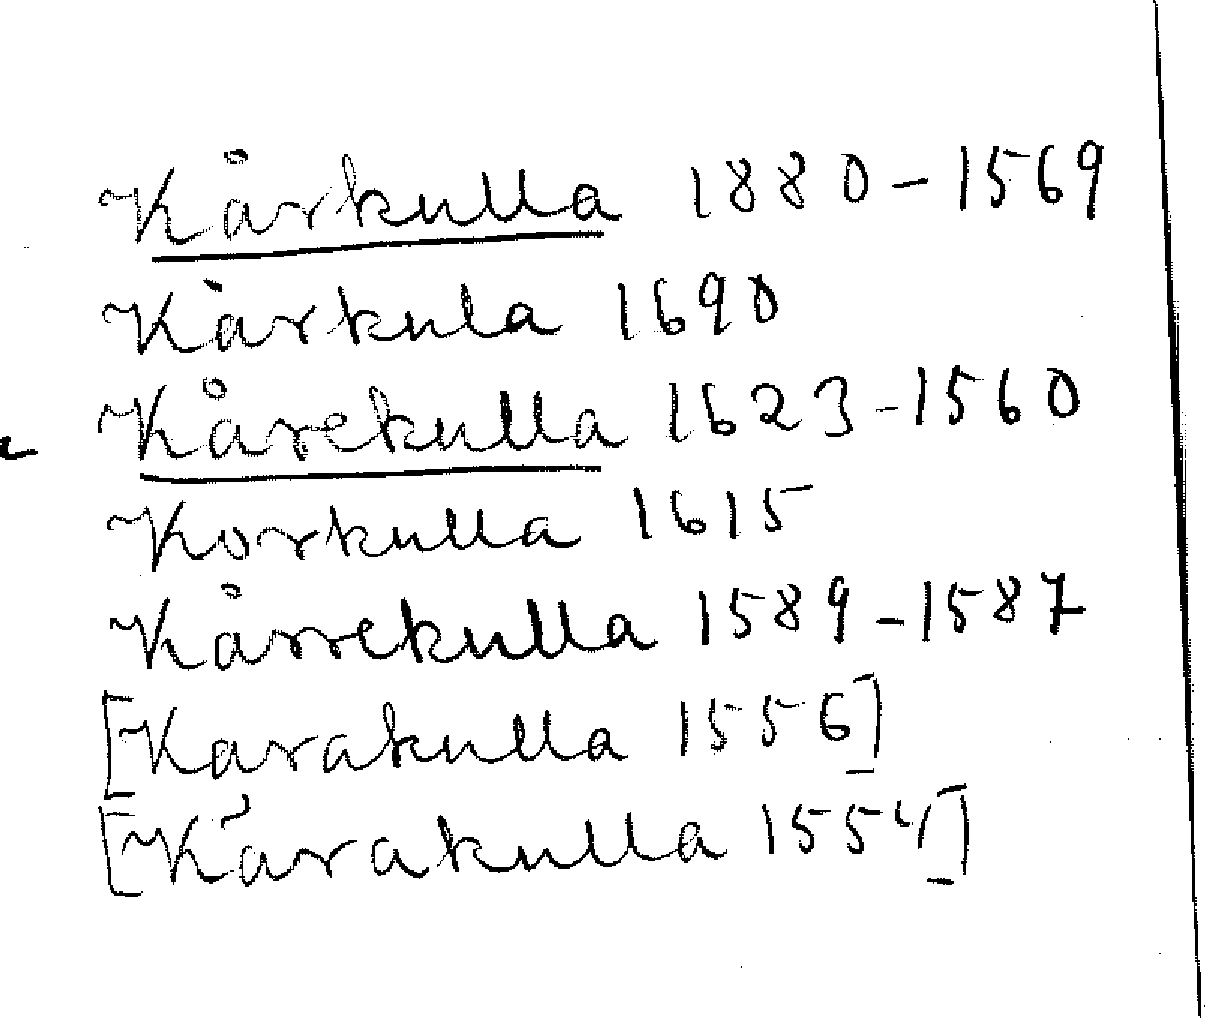 Kårkulla 1880-1569
Kårkula 1690
Kårekulla 1623-1560
Korkulla 1615
Kårrekulla 1589-1587
[Karakulla 1556]
[Kårakulla 1554]